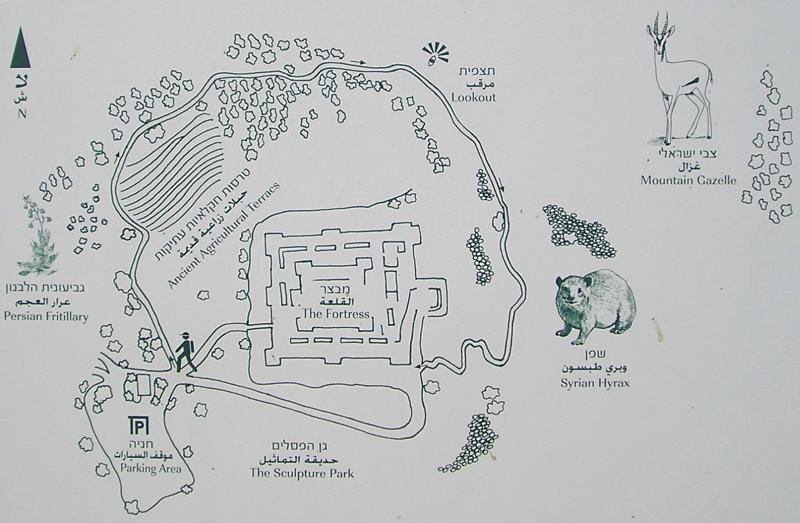 N
תצפית
مرقب
Lookout
צבי ישראלי
غزال
Mountain Gazelle
טרסות חקלאיות עתיקות
حبلات زراعية قديمة
Ancient Agricultural Terracs
גביעונית הלבנון
عرار العجم
Persian Fritillary
מבצר
القلعة
The Fortress
שפן
وبري طبسون
Syrian Hyrax
P
חניה
موقف السيارات
Parking Area
גן הפסלים
حديقة التماثيل
The Sculpture Park